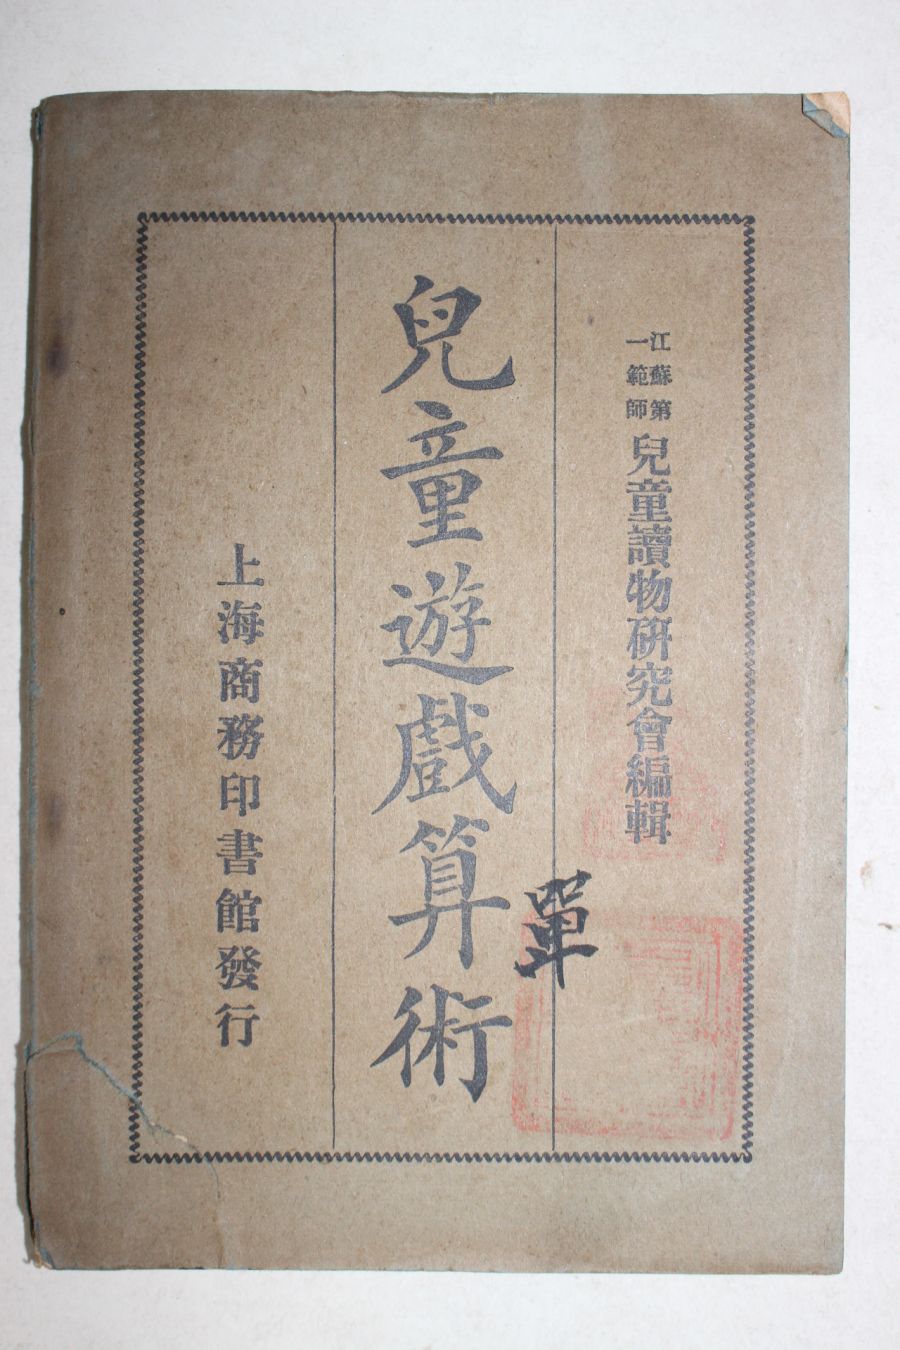 江蘇第
一範師
兒童讀物研究會編輯
兒童遊戲算術
單
上海商務印書館發行